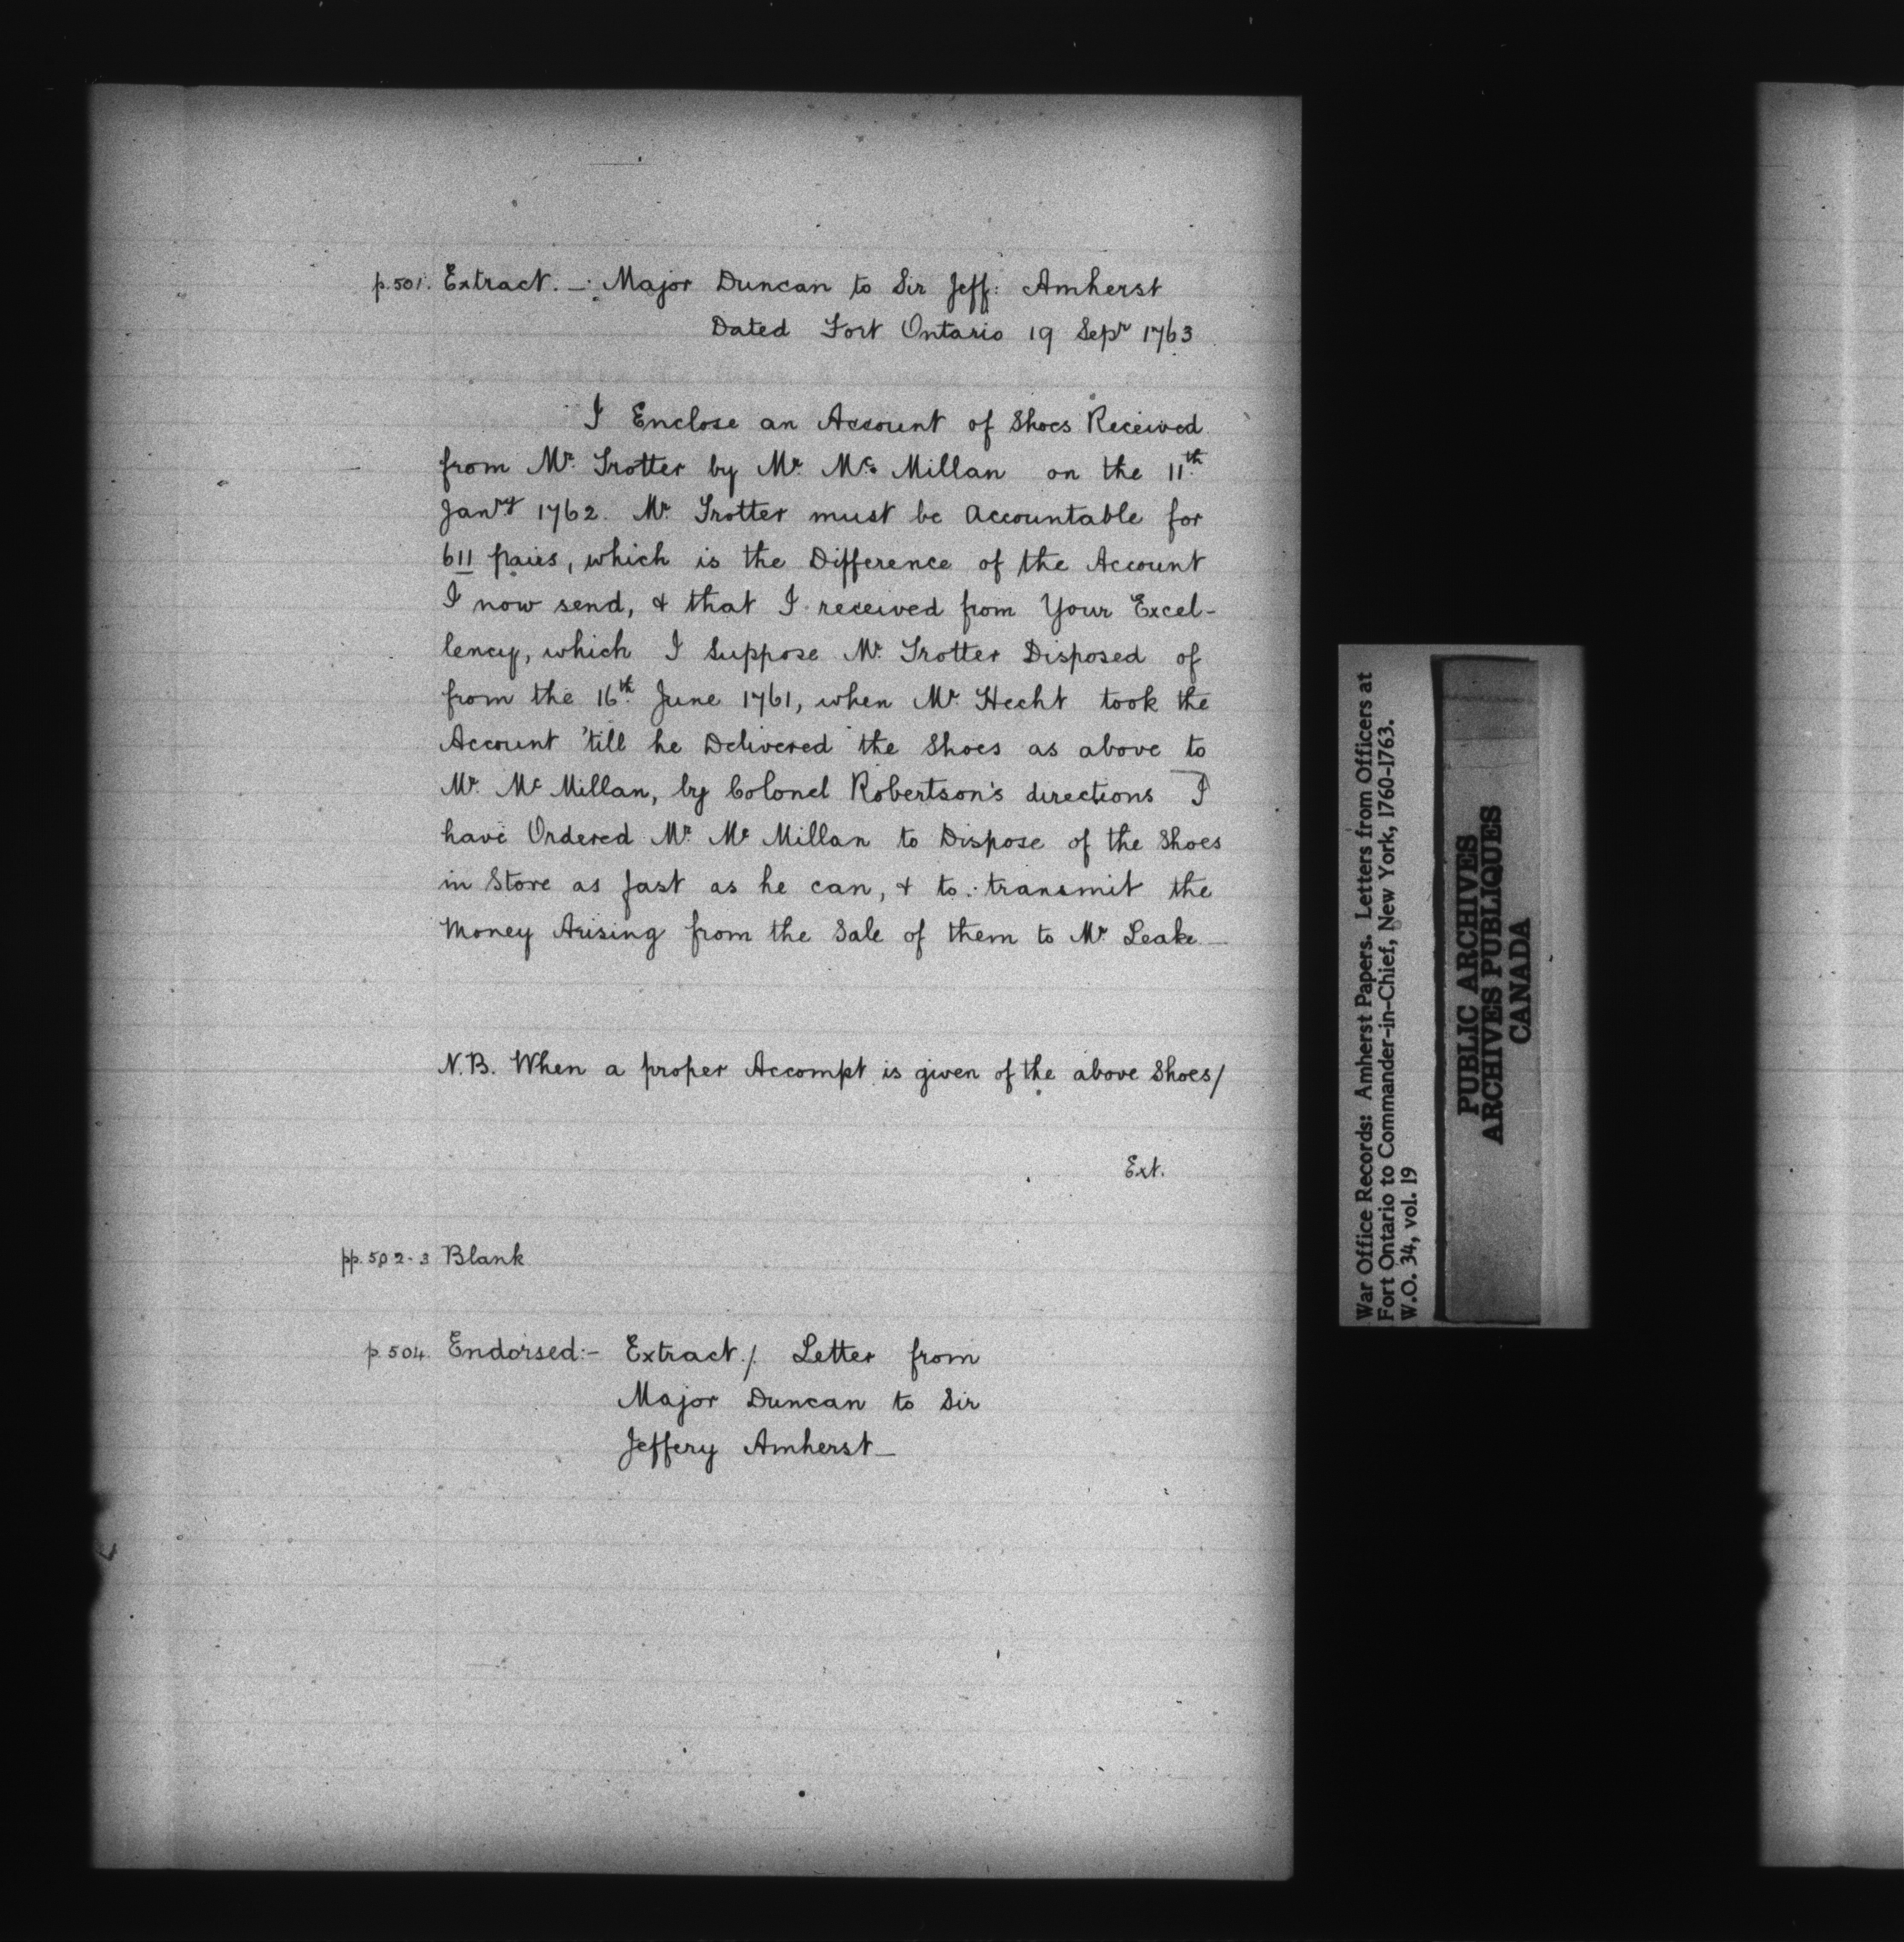 p.501. Extract. —: Major Duncan to Sir Jeff: Amherst
Dated Fort Ontario 19 Sepr 1763
I Enclose an Account of Shoes Received
from Mr. Trotter by Mr. Mc. Millan on the 11th.
Janry 1762. Mr. Trotter must be accountable for
611 pairs, which is the Difference of the Account
I now send, & that I received from Your Excel-
lency, which I Suppose Mr. Trotter Disposed of
from the 16th. June 1761, when Mr. Hecht took the
Account 'till he Delivered the Shoes as above to
Mr. Mc Millan, by Colonel Robertson's directions I
have Ordered Mr. Mc Millan to Dispose of the Shoes
in Store as fast as he can, & to transmit the
Money Arising from the Sale of them to Mr. Leake —
N.B. When a proper Accompt is given of the above Shoes/
Ext.
pp. 502-3 Blank
p. 504. Endorsed:- Extract./. Letter from
Major Duncan to Sir
Jeffery Amherst —
War Office Records: Amherst Papers. Letters from Officers at
Fort Ontario to Commander-in-Chief, New York, 1760-1763.
W.O. 34, vol. 19
PUBLIC ARCHIVES
ARCHIVES PUBLIQUES
CANADA